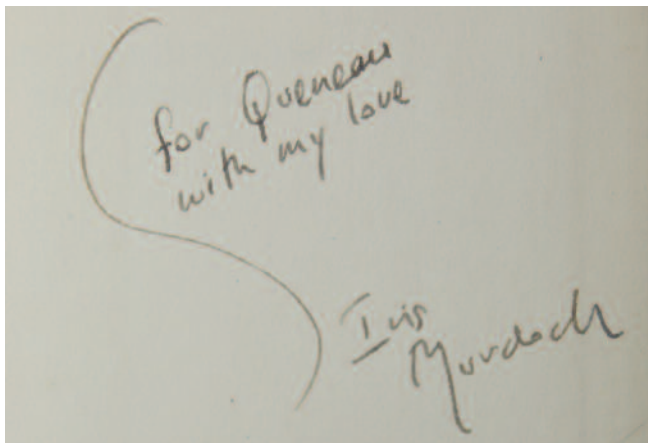 for Queneau
with my love
Iris
Murdoch